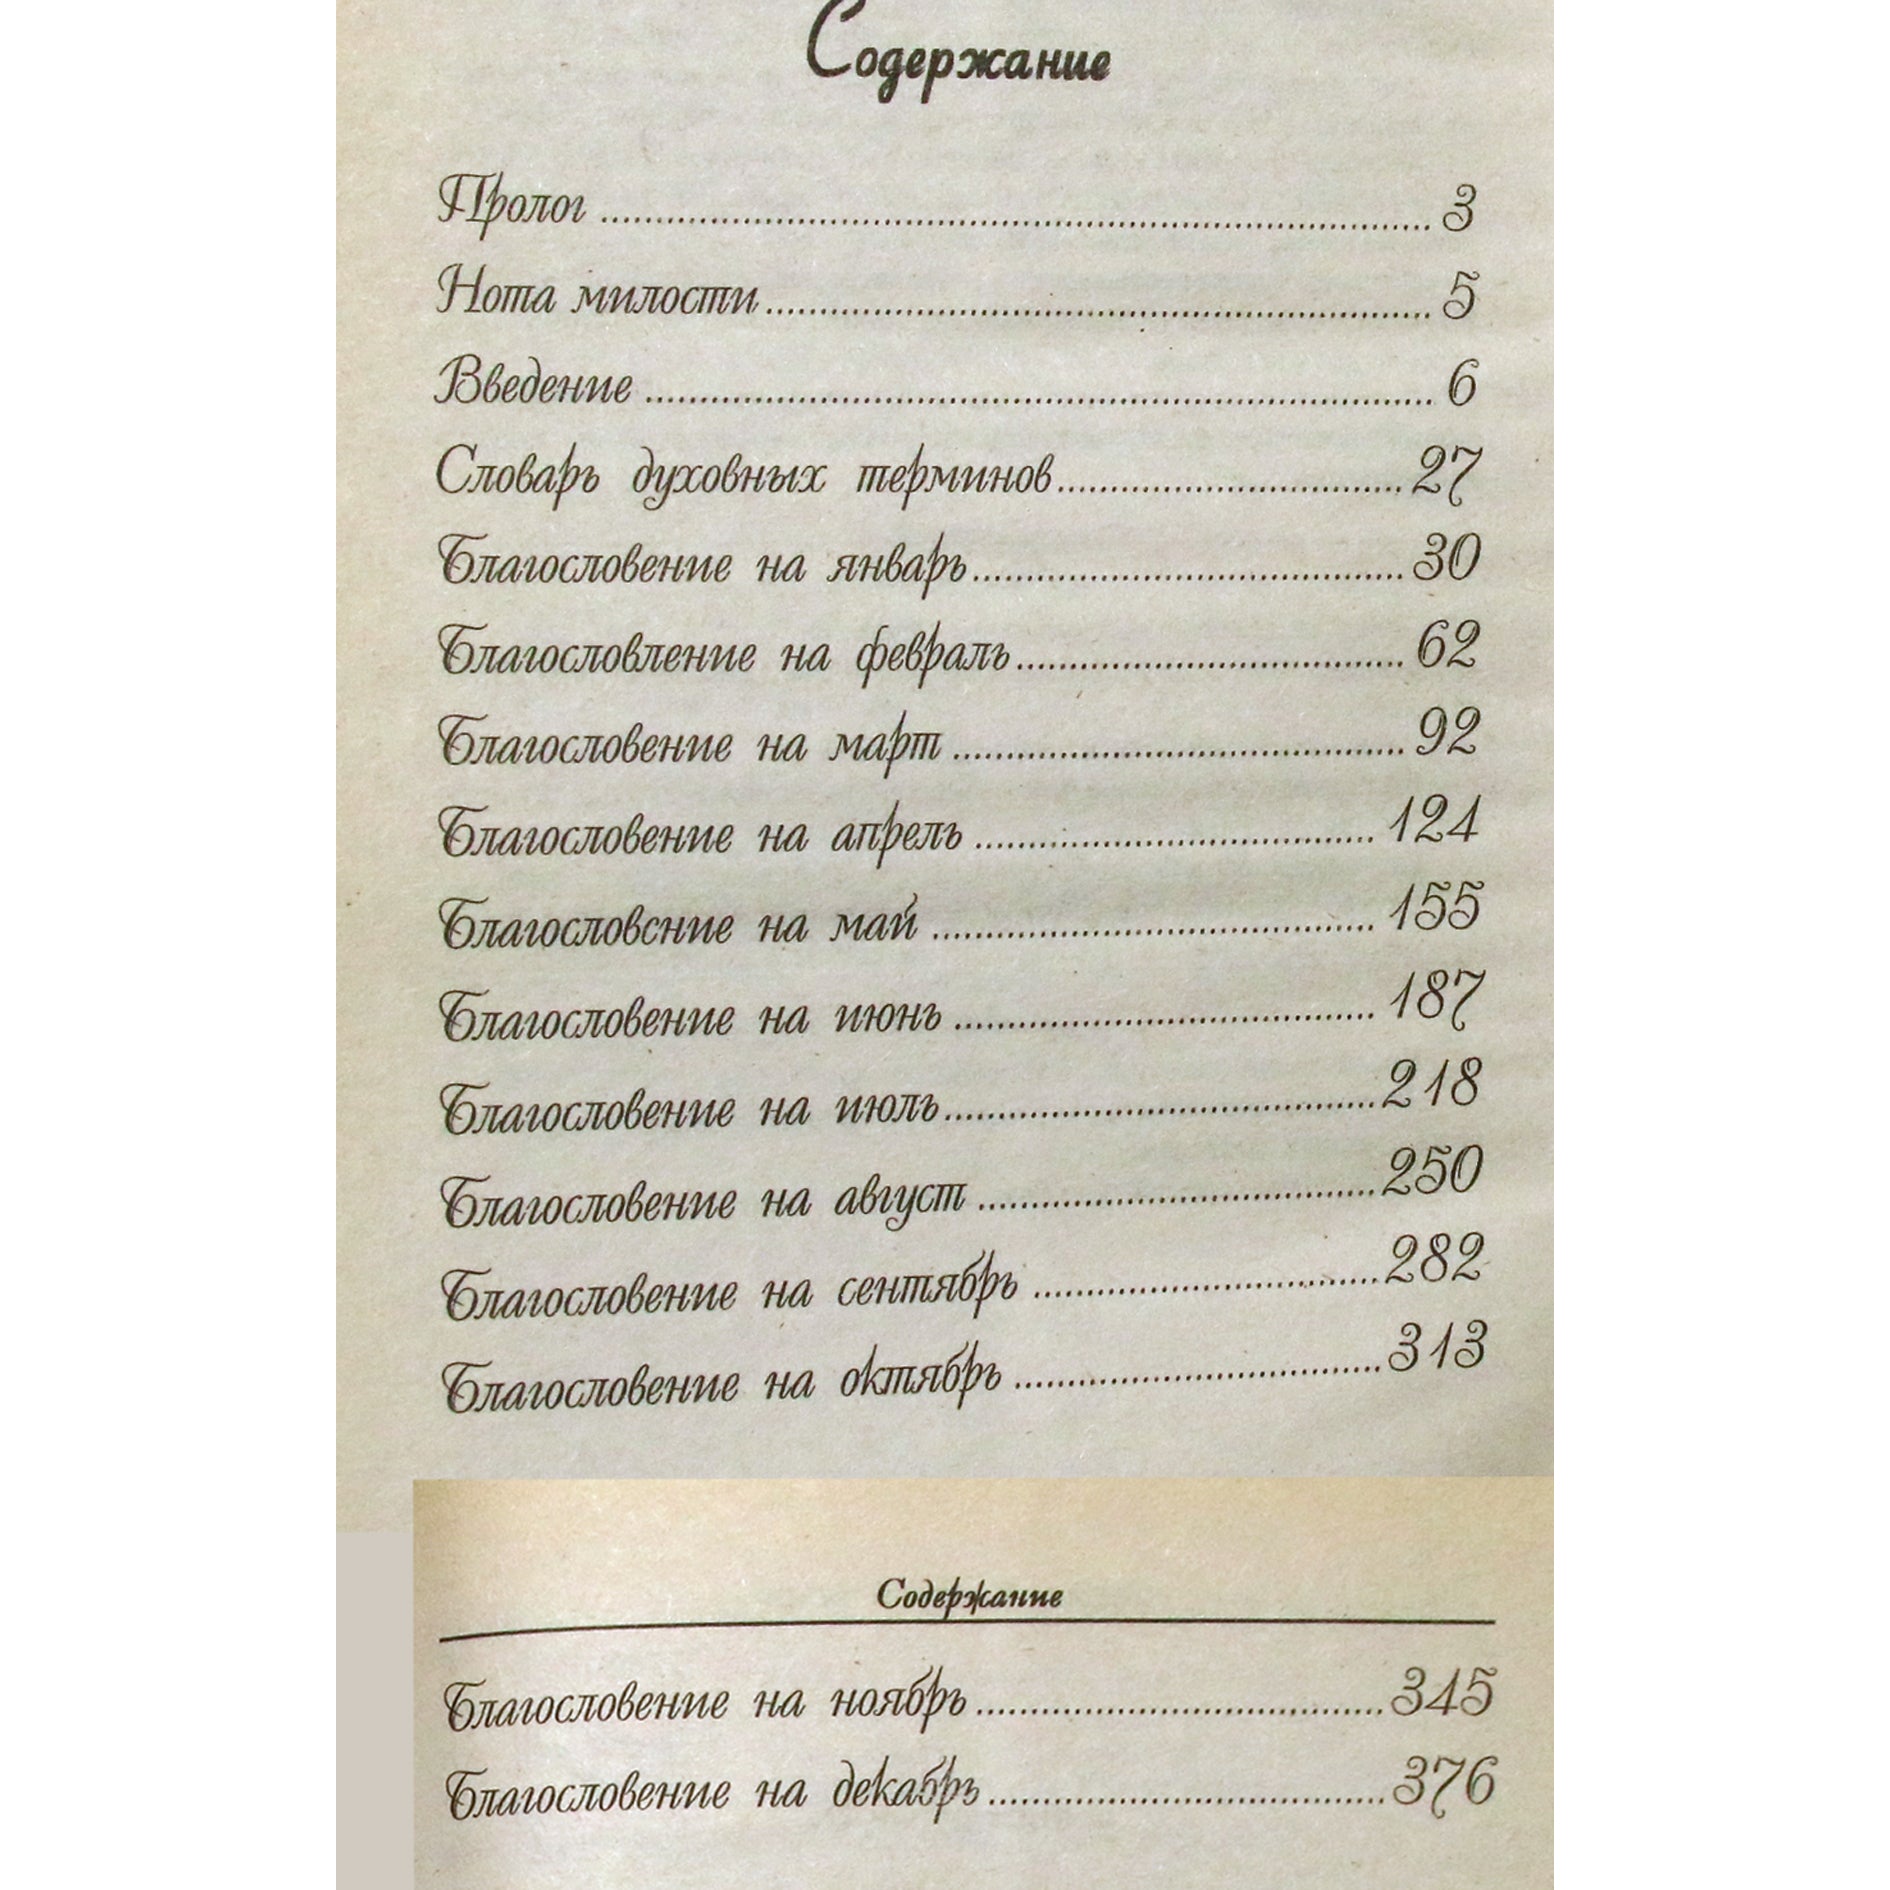 Содержание
Пролог ........ 3
Нота милости ........ 5
Введение ........ 6
Словарь духовных терминов ........ 27
Благословение на январь ........ 30
Благословление на февраль ........ 62
Благословение на март ........ 92
Благословение на апрель ........ 124
Благословсние на май ........ 155
Благословение на июнь ........ 187
Благословение на июль ........ 218
Благословение на август ........ 250
Благословение на сентябрь ........ 282
Благословение на октябрь ........ 313
Содержание
Благословение на ноябрь ........ 345
Благословение на декабрь ........ 376